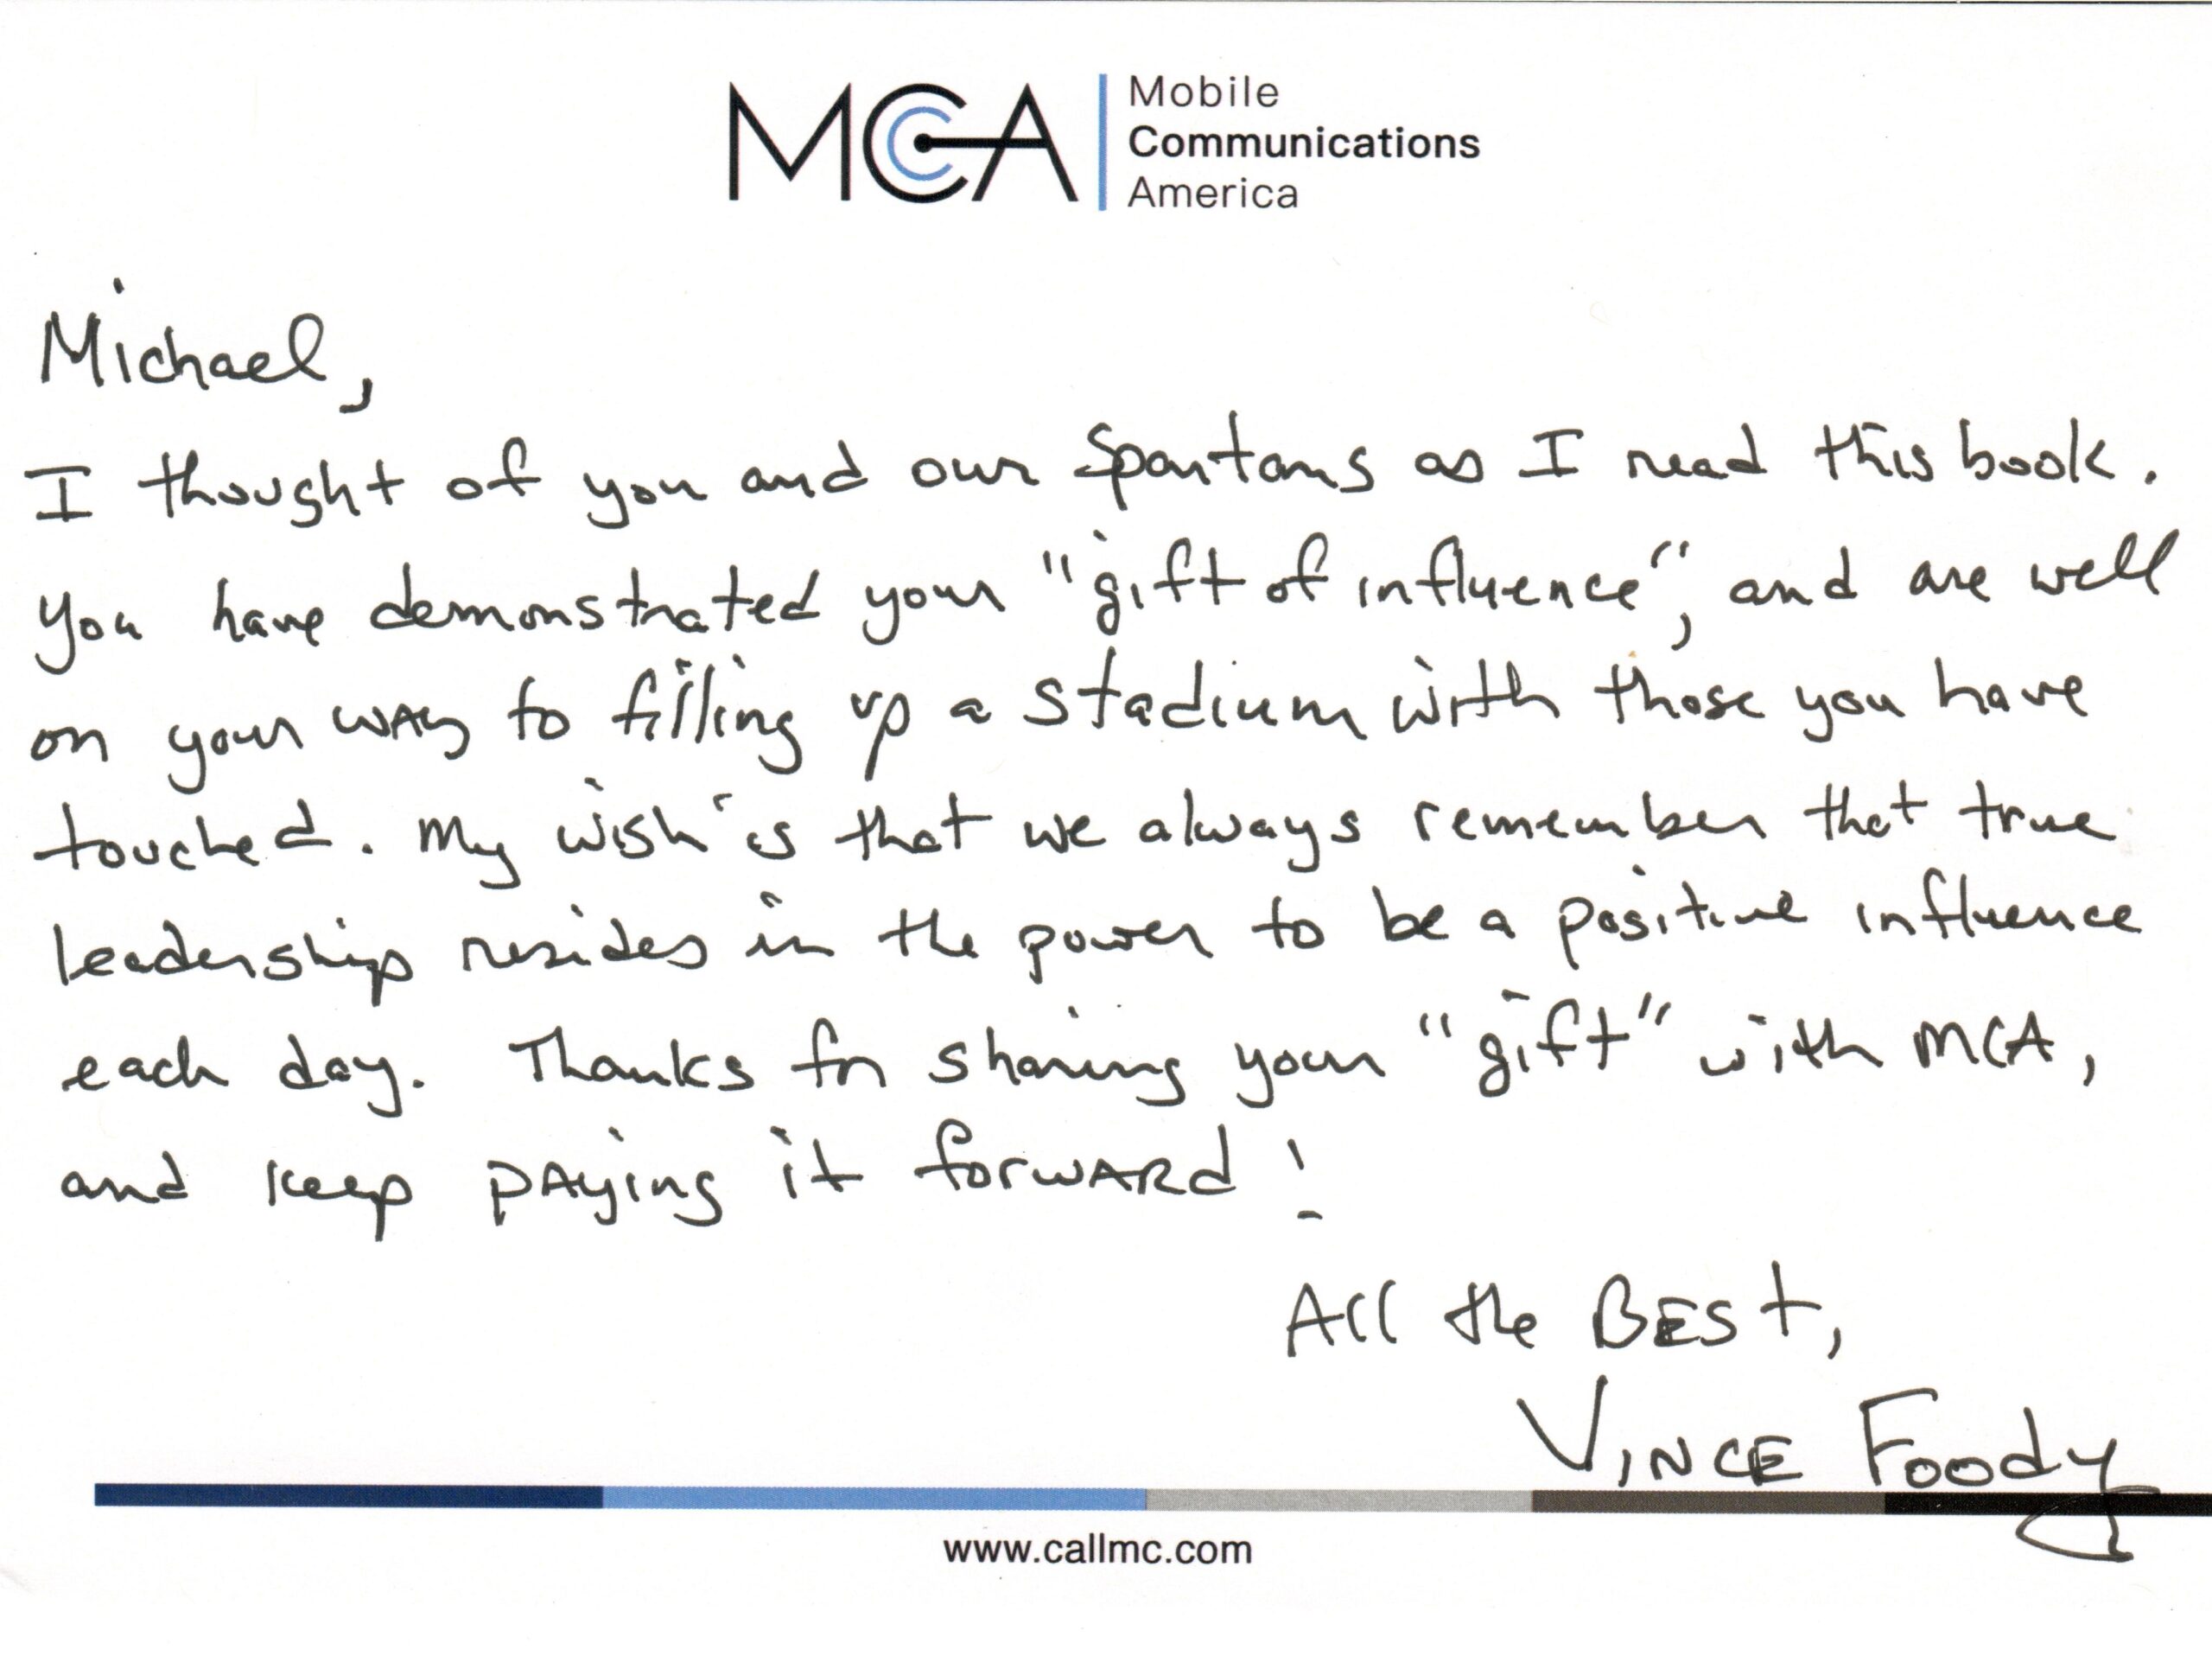 MCA
Mobile
Communications
America
Michael,
I thought of you and our Spartans as I read this book.
You have demonstrated your "gift of influence", and are well
on your way to filling up a stadium with those you have
touched. My wish is that we always remember that true
leadership resides in the power to be a positive influence
each day. Thanks for sharing your "gift" with MCA,
and keep paying it forward!
All the Best,
Vince Foody
www.callmc.com